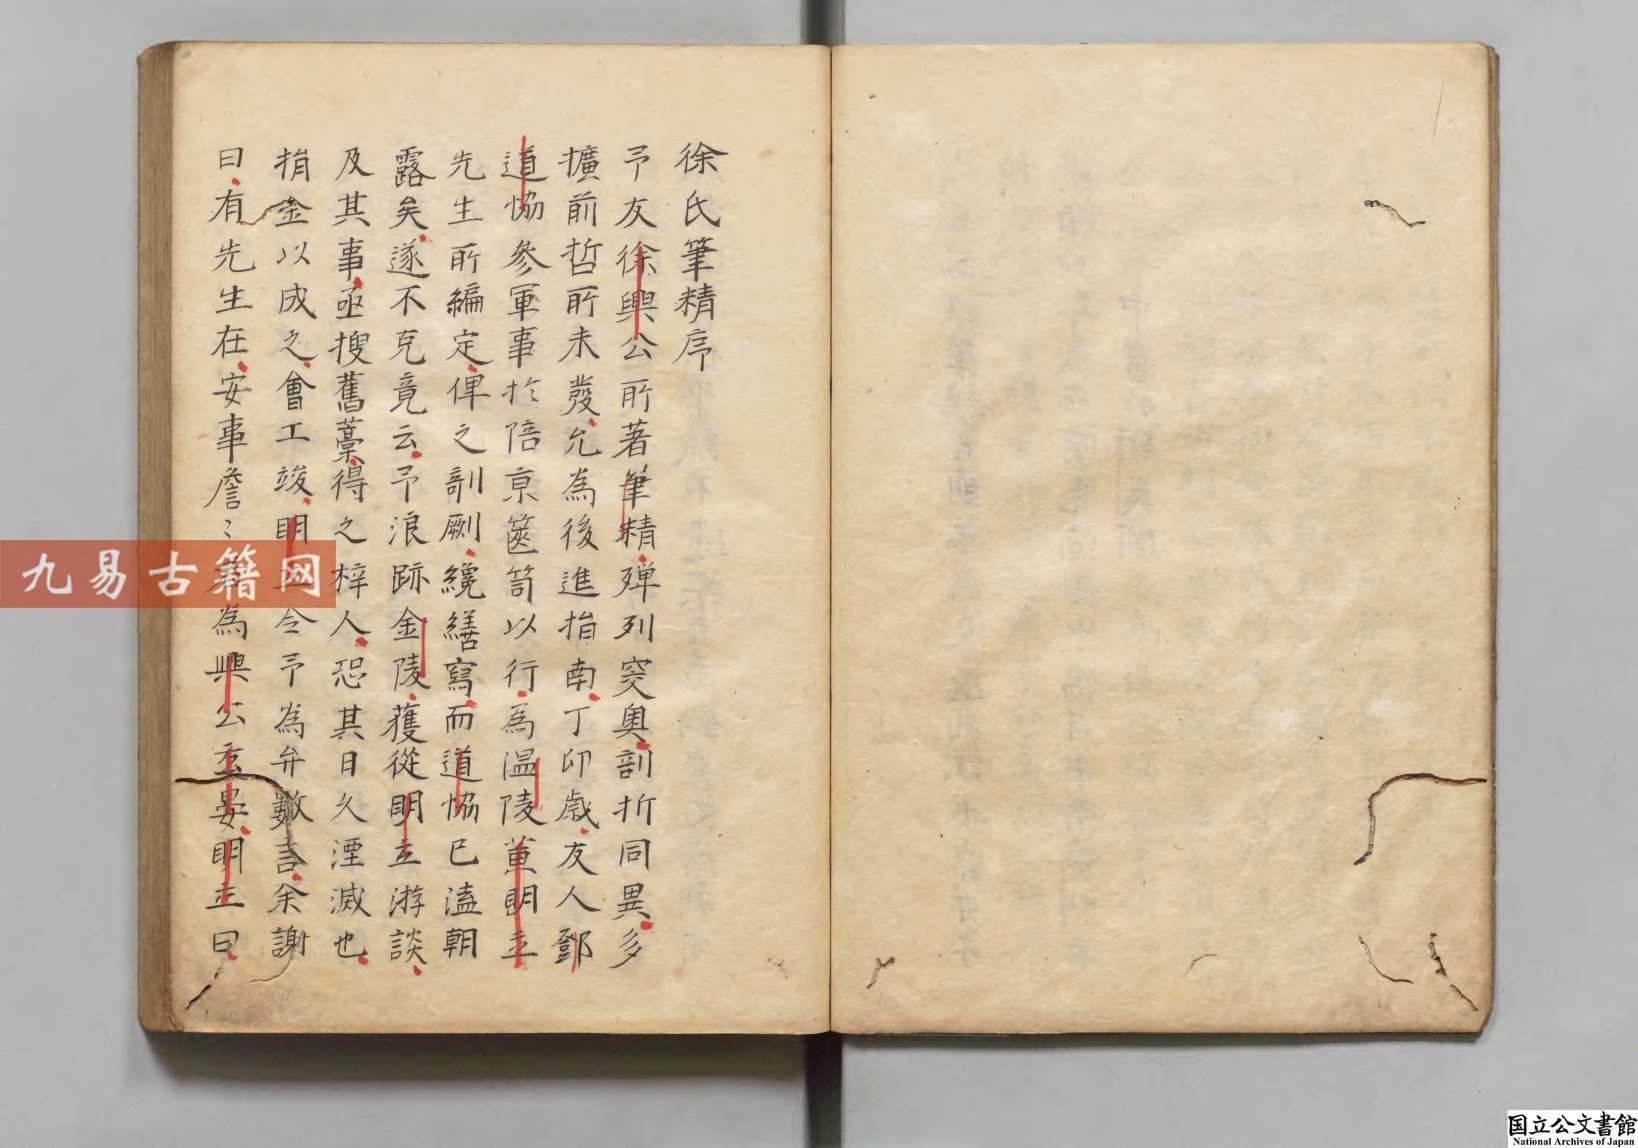 徐氏筆精序
予友徐興公所著筆精殫列窔奧剖折同異多
擴前哲所未發允為後進指南丁卯歲友人鄧
道協參軍事於陪京篋笥以行為温陵黄明立
先生所編定俾之剞劂纔繕寫而道協已溘朝
露矣遂不克竟云予浪跡金陵獲從明立游談
及其事亟搜舊藁得之梓人恐其日久湮滅也
捐金以成之會工竣明立令予為弁數言余謝
曰有先生在安事詹〻者為興公玄晏明立曰
九易古籍网
国立公文書館
National Archives of Japan